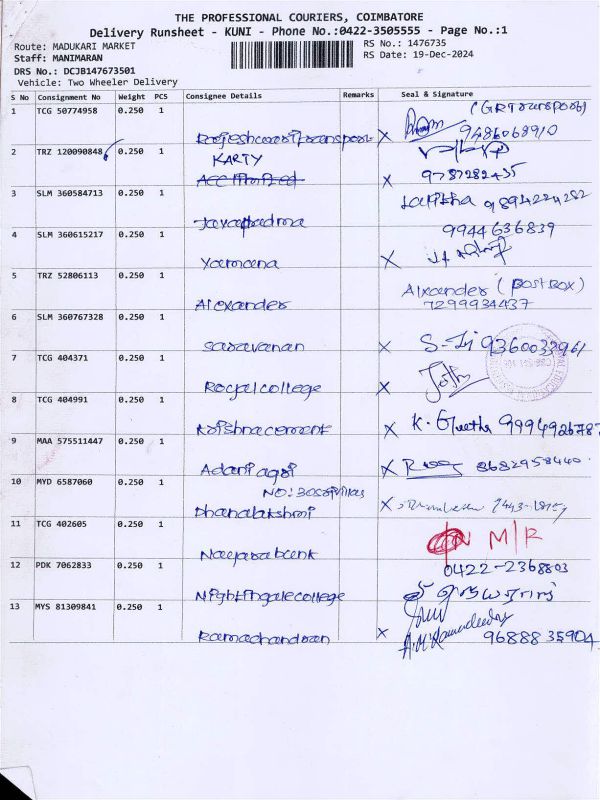 THE PROFESSIONAL COURIERS, COIMBATORE
Delivery Runsheet - KUNI - Phone No.:0422-3505555 - Page No.:1
Route: MADUKARI MARKET
RS No.: 1476735
Staff: MANIMARAN
RS Date: 19-Dec-2024
DRS No.: DCJB147673501
Vehicle: Two Wheeler Delivery
S No Consignment No Weight PCS Consignee Details Remarks Seal & Signature
1 TCG 50774958 0.250 1 (GRTransport)
Rajeshwari transport X 9486068910
2 TRZ 120090848 0.250 1 KARTY
X 9787282435
3 SLM 360584713 0.250 1 Lalitha 9894224282
Jayapadma
4 SLM 360615217 0.250 1 9944636839
Yamuna X
5 TRZ 52806113 0.250 1 Alxander (POSTBOX)
Alexander 7299934437
6 SLM 360767328 0.250 1
Saravanan X 9360032961
7 TCG 404371 0.250 1
Royal college X
8 TCG 404991 0.250 1
Krishna cement X K. Geetha 9994926787
9 MAA 575511447 0.250 1
Adani agri X 8682958440
10 MYD 6587060 0.250 1 NO: 30
Dhanalakshmi X
11 TCG 402605 0.250 1 N M/R
Nayara bunk
12 PDK 7062833 0.250 1 0422-2368803
Nightingale college
13 MYS 81309841 0.250 1
Ramachandran X 9688835904